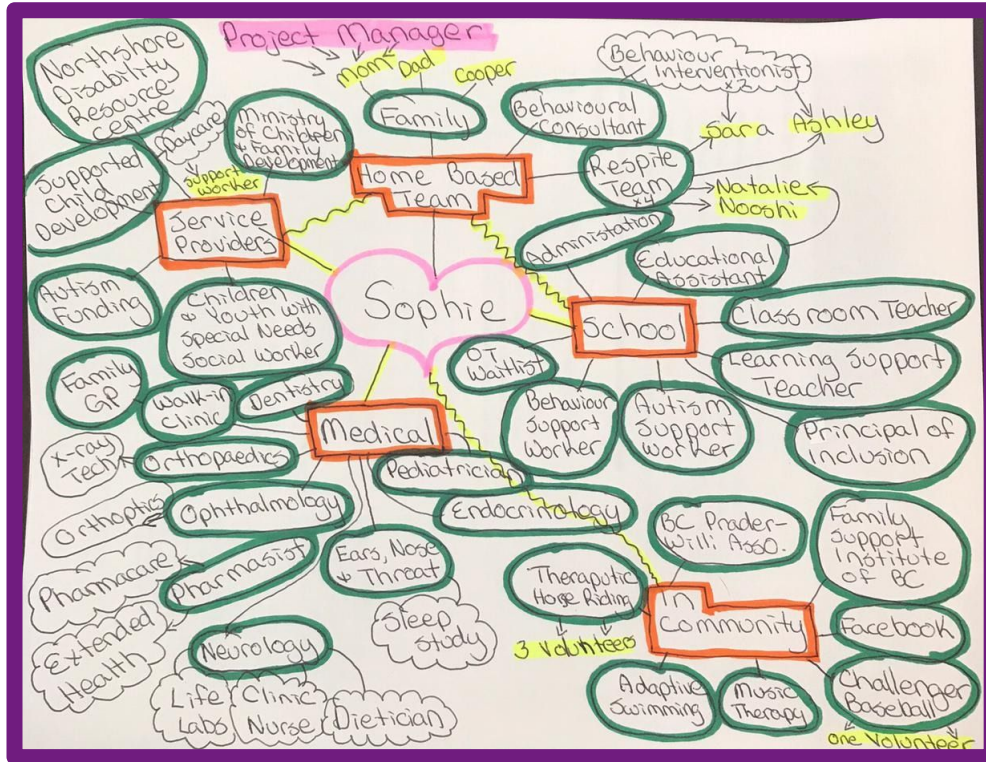 Project Manager
Mom Dad
Cooper
Family
Behavioural
Consultant
Behaviour
Interventionist
x2
Sara Ashley
Respite
Team
x4
Natalie
Nooshi
Home Based
Team
Northshore
Disability
Resource
centre
Daycare
Ministry
of Children
& Family
Development
Supported
Child
Development
Support
worker
Service
Providers
Autism
Funding
Children
& Youth with
Special Needs
Social Worker
Sophie
Administation
Educational
Assistant
School
Classroom Teacher
Learning Support
Teacher
Principal of
Inclusion
OT
Waitlist
Behaviour
Support
Worker
Autism
Support
Worker
Family
GP
Walk-in
Clinic
Dentistry
Medical
X-ray
Tech
Orthopaedics
Pediatrician
Orthoptics
Ophthalmology
Endocritology
Pharmacare
Pharmasist
Extended
Health
Ears, Nose
& Throat
Sleep
Study
Neurology
Life
Labs
Clinic
Nurse
Dietician
BC Prader-
Willi Asso.
Family
Support
Institute
of BC
Theraputic
Horse Riding
3 Volunteers
In
Community
Facebook
Adaptive
Swimming
Music
Therapy
Challenger
Baseball
one Volunteer